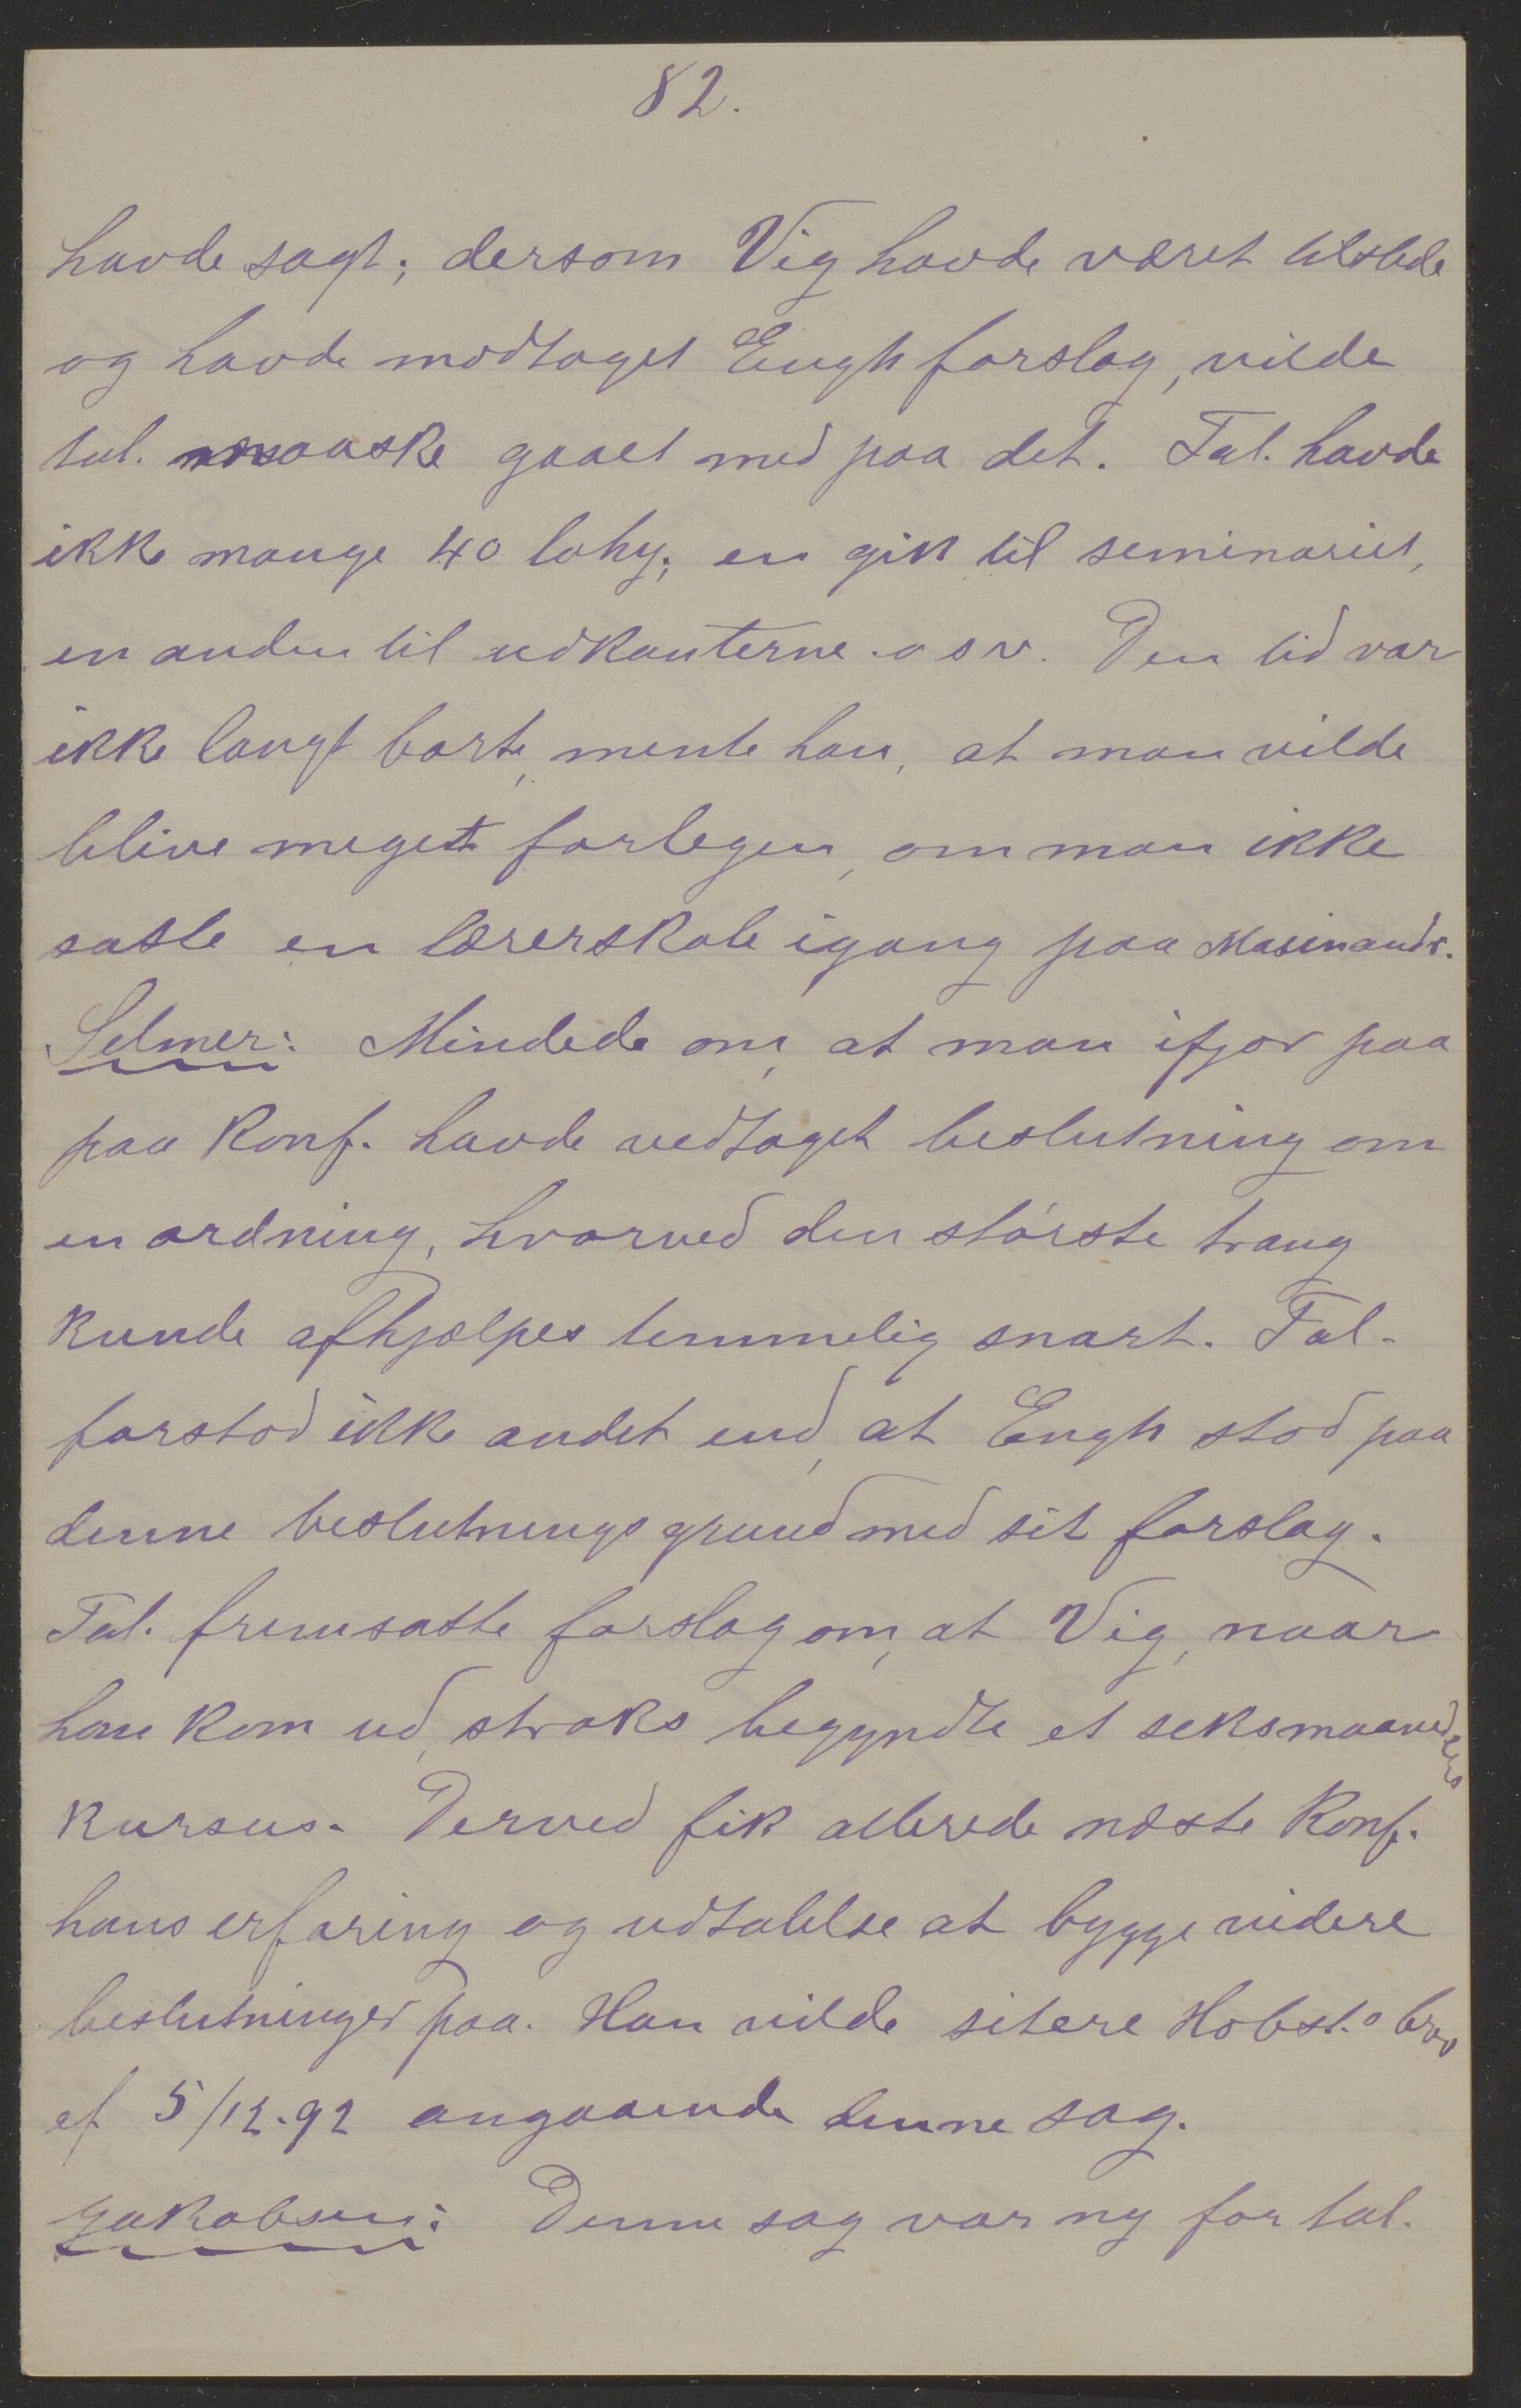 82.
havde sagt; dersom Vig havde været tilstede
og havde modtaget Enghs forslag, vilde
tal. maaske gaaet med paa det. Tal. havde
ikke mange 40 lohy; en gik til seminariet,
en anden til udkanterne o s v. Den tid var
ikke langt borte, mente han, at man vilde
blive meget forlegen, om man ikke
satte en lærerskole igang paa Masinandr.
Selmer: Mindede om, at man ifjor paa
paa Konf. havde vedtaget beslutning om
en ordning, hvorved den störste trang
kunde afhjælpes temmelig snart. Tal.
forstod ikke andet end, at Engh stod paa
denne beslutnings grund med sit forslag.
Tal. fremsatte forslag om, at Vig, naar
han kom ud, straks begyndte et seksmaaneders
kursus. Derved fik allerede næste Konf.
hans erfaring og udtalelse at bygge videre
beslutninger paa. Han vilde sitere Hobst.s brev
af 5/12.92 angaaende denne sag.
Jakobsen: Denne sag var ny for tal.